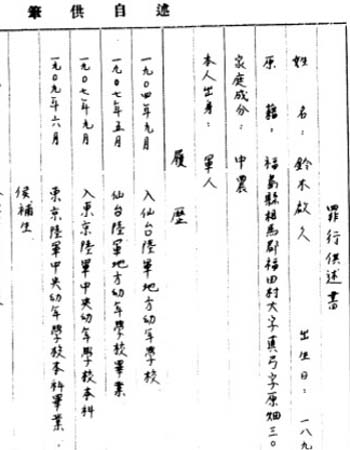 筆供自述
罪行供述書
姓名：鈴木啟久 出生日：一八九
原籍：福島縣相馬郡福田村大字真弓字原畑三〇
家庭成分：中農
本人出身：軍人
履歷
一九〇四年九月 入仙台陸軍地方幼年學校
一九〇七年五月 仙台陸軍地方幼年學校畢業
一九〇七年九月 入東京陸軍中央幼年學校本科
一九〇九年六月 東京陸軍中央幼年學校本科畢業．
候補生